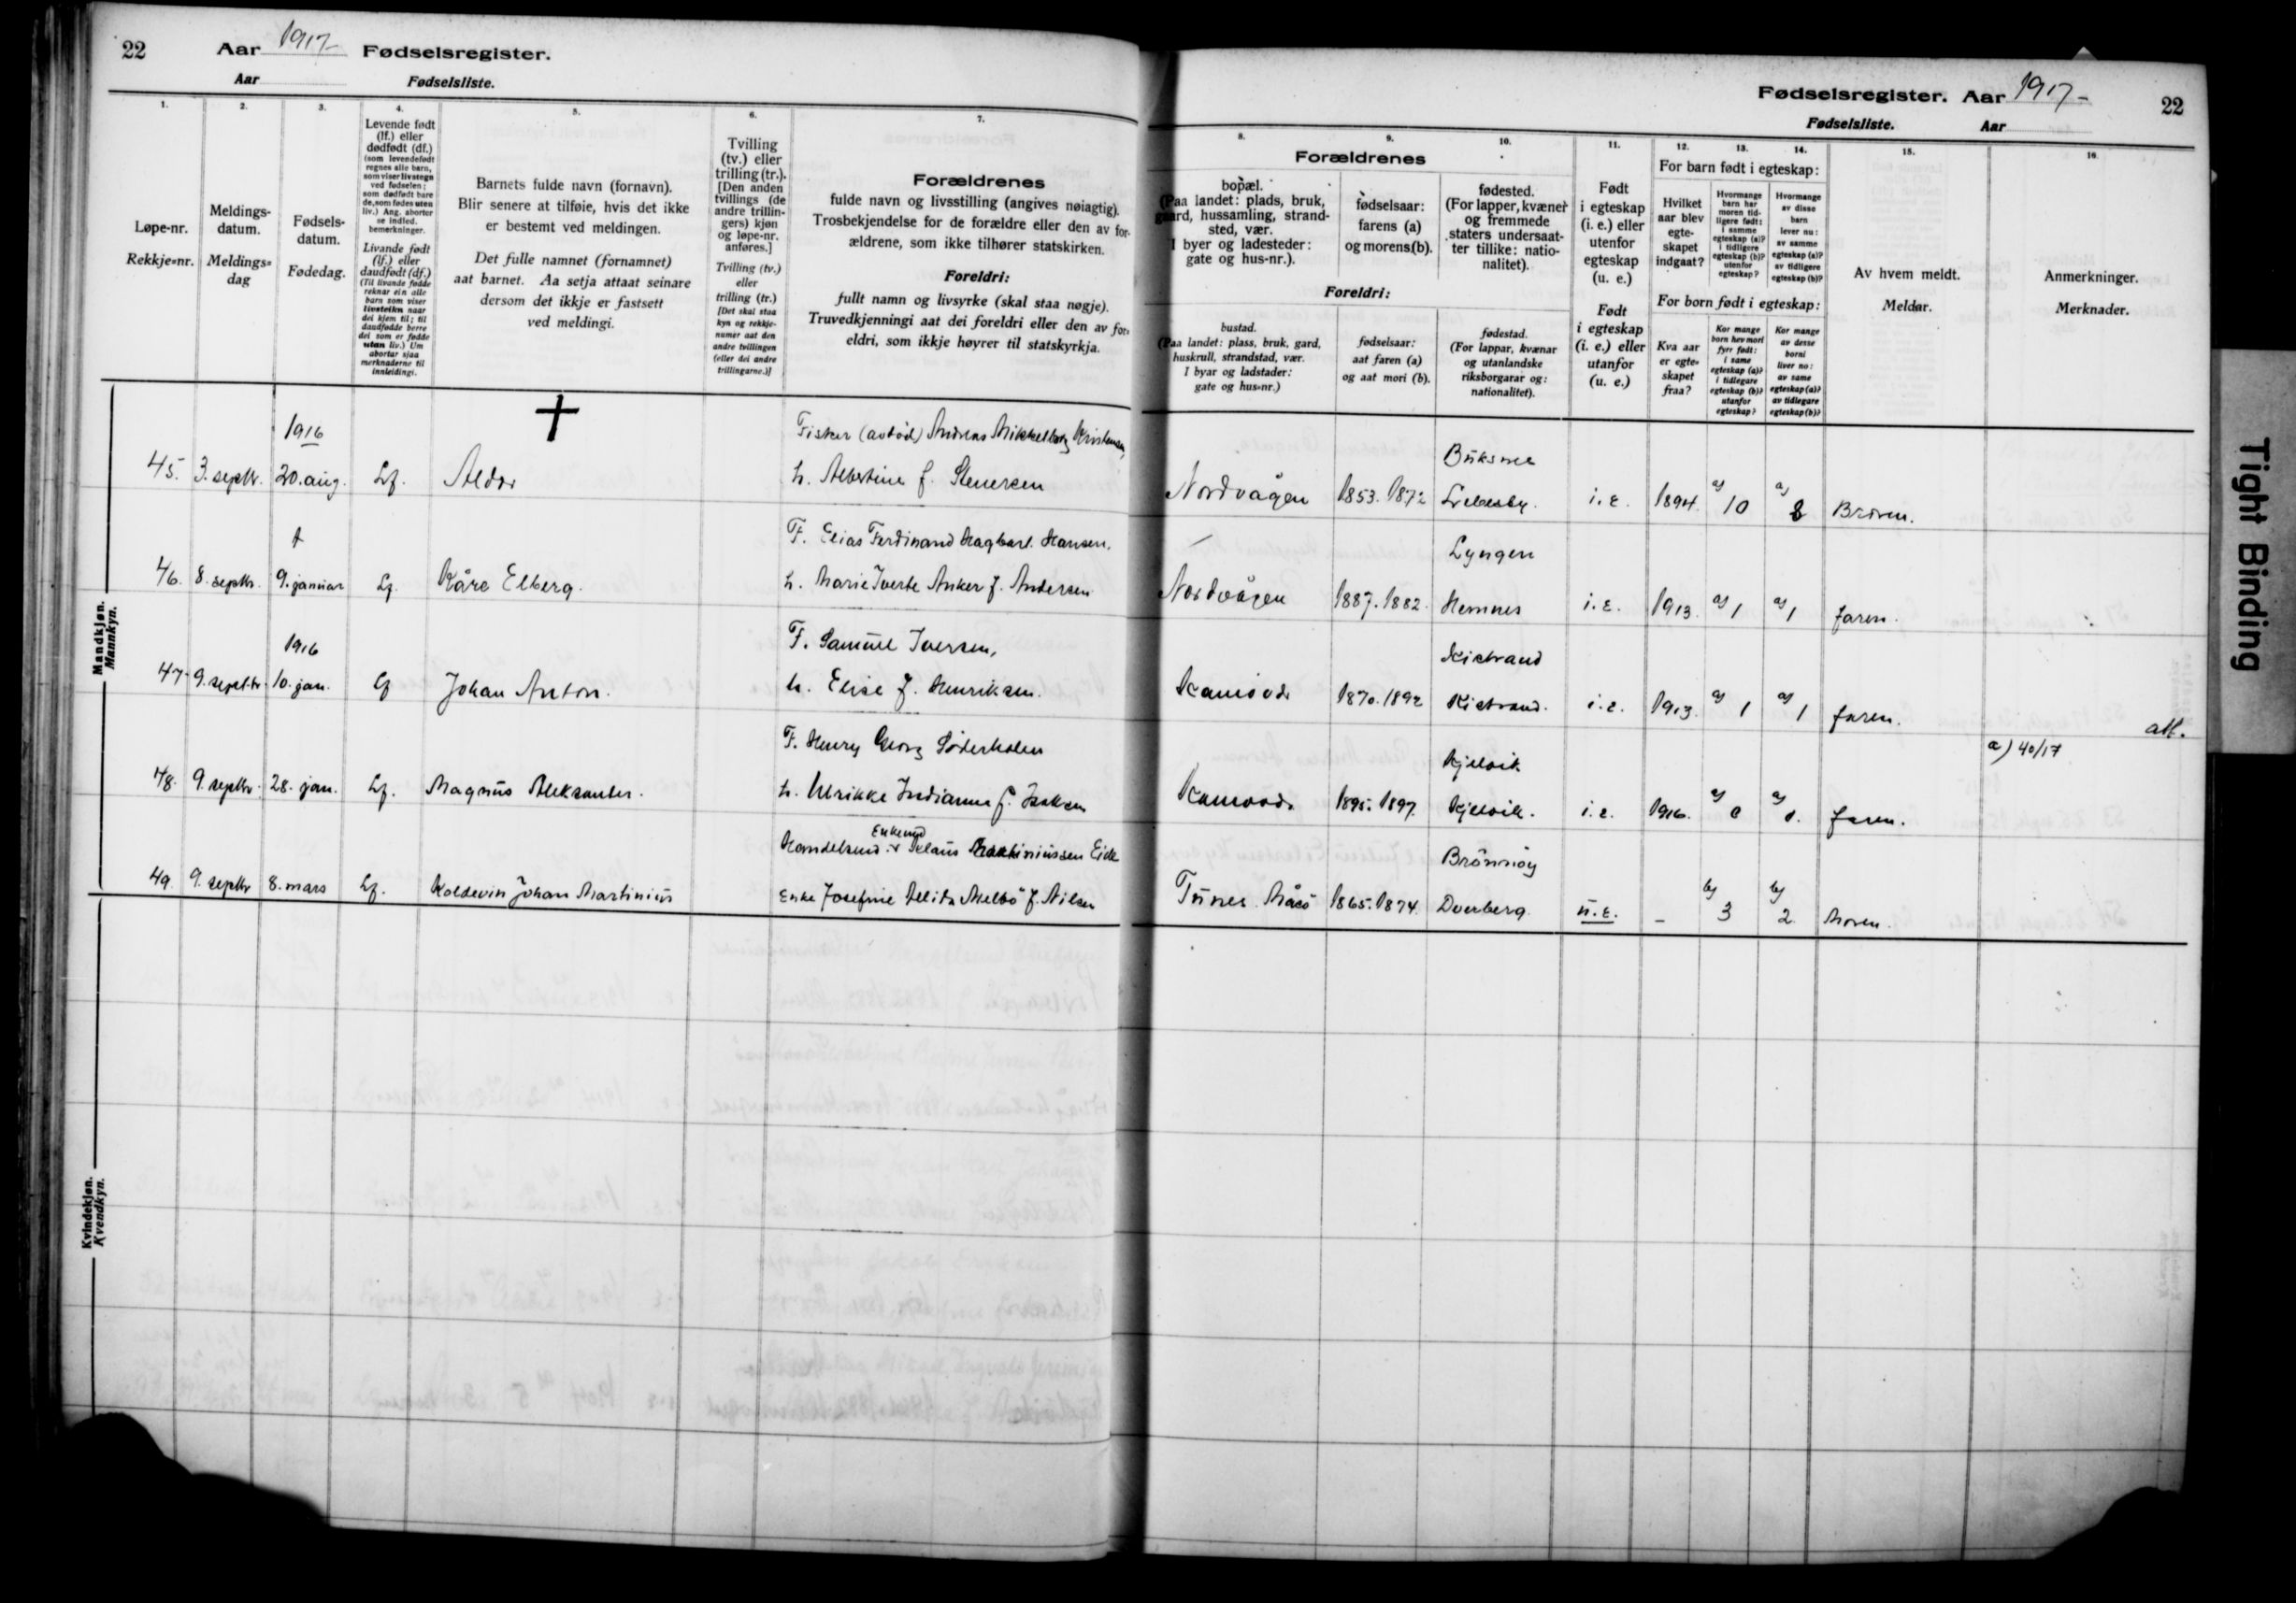 22 Aar 1917- Fødselsregister.
Aar Fødselsliste.
1. 2. 3. 4. 5. 6. 7.
Løpe-nr.
Rekkje-nr.
Meldings-
datum.
Meldings-
dag
Fødsels-
datum.
Fødedag.
Levende født
(lf.) eller
dødfødt (df.)
(som levendefødt
regnes alle barn,
som viser livstegn
ved fødselen;
som dødfødt bare
de, som fødes uten
liv.) Ang. aborter
se indled.
bemerkninger.
Livande født
(lf.) eller
daudfødt (df.)
(Til livande fødde
reknar ein alle
barn som viser
livsteikn naar
dei kjem til; til
daudfødde berre
dei som er fødde
utan liv.) Um
abortar sjaa
merknaderne til
innleidingi.
Barnets fulde navn (fornavn).
Blir senere at tilføie, hvis det ikke
er bestemt ved meldingen.
Det fulle namnet (fornamnet)
aat barnet. Aa setja attaat seinare
dersom det ikkje er fastsett
ved meldingi.
Tvilling
(tv.) eller
trilling (tr.).
[Den anden
tvillings (de
andre trillin-
gers) kjøn
og løpe-nr.
anføres.]
Tvilling (tv.)
eller
trilling (tr.)
[Det skal staa
kyn og rekkje-
numer aat den
andre tvillingen
(eller dei andre
trillingarne.)]
Forældrenes
fulde navn og livsstilling (angives nøiagtig).
Trosbekjendelse for de forældre eller den av for-
ældrene, som ikke tilhører statskirken.
Foreldri:
fullt namn og livsyrke (skal staa nøgje).
Truvedkjenningi aat dei foreldri eller den av for-
eldri, som ikkje høyrer til statskyrkja.
Mandkjøn.
Mannkyn.
1916 Fisker (avdød) Andreas Mikkelborg Kristensen,
45. 3. septbr. 20. aug. Lf. Aldor h. Albertine f. Stenersen
F. Elias Ferdinand Hagbart Hansen,
46. 8. septbr. 9. januar Lf. Kåre Elberg. h. Marie Anker f. Andersen
1916 F. Samuel Iversen,
47. 9. septbr. 10. jan. Lf Johan Anton. h. Elise f. Henriksen.
F. Henry Georg Söderholm
48. 9. septbr. 28. jan. Lf. Magnus Aleksander. h. Ulrikke Indianna f. Isaksen
Enkemd
Handelsmd. Klaus Martiniussen Eide
49. 9. septbr 8. mars Lf. Koldevin Johan Martinius Enke Josefine Alida Melbö f. Nilsen
Kvindekjøn.
Kvendkyn.
Fødselsregister. Aar 1917- 22
Fødselsliste. Aar
8. 9. 10. 11. 12. 13. 14. 15. 16
Forældrenes
bopæl.
(Paa landet: plads, bruk,
gaard, hussamling, strand-
sted, vær.
I byer og ladesteder:
gate og hus-nr.).
fødselsaar:
farens (a)
og morens (b).
fødested.
(For lapper, kvæner
og fremmede
staters undersaat-
ter tillike: natio-
nalitet).
Foreldri:
bustad.
(Paa landet: plass, bruk, gard,
huskrull, strandstad, vær.
I byar og ladstader:
gate og hus-nr.)
fødselsaar:
aat faren (a)
og aat mori (b).
fødestad.
(For lappar, kvænar
og utanlandske
riksborgarar og:
nationalitet).
Født
i egteskap
(i. e.) eller
utenfor
egteskap
(u. e.)
Født
i egteskap
(i. e.) eller
utanfor
(u. e.)
For barn født i egteskap:
Hvilket
aar blev
egte-
skapet
indgaat?
Hvormange
barn har
moren tid-
ligere født:
i samme
egteskap (a)?
i tidligere
egteskap (b)?
utenfor
egteskap?
Hvormange
av disse
barn
lever nu:
av samme
egteskap (a)?
av tidligere
egteskap (b)?
For born født i egteskap:
Kva aar
er egte-
skapet
fraa?
Kor mange
born hev mori
fyrr født:
i same
egteskap (a)?
i tidlegare
egteskap (b)?
utanfor
egteskap?
Kor mange
av desse
borni
liver no:
av same
egteskap (a)?
av tidlegare
egteskap (b)?
Av hvem meldt.
Meldar.
Anmerkninger.
Merknader.
Buksnes
Nordvågen 1853. 1872 Lebesby. i. e. 1894. a) 10 a) 8 Broren.
Lyngen
Nordvågen 1887. 1882. Hemnes i. e. 1913. a) 1 a) 1 faren.
Kistrand
Kamöv. 1870. 1892 Kistrand. i. e. 1913. a) 1 a) 1 faren.
att.
a) 40/17
Kjelvik
1895. 1897. Kjelvik. i. e. 1916. a) 0 a) faren.
Brönnöy
Tunes Måsö 1865. 1874. Dverberg. u. e. – b) 3 b) 2 Moren.
Tight Binding